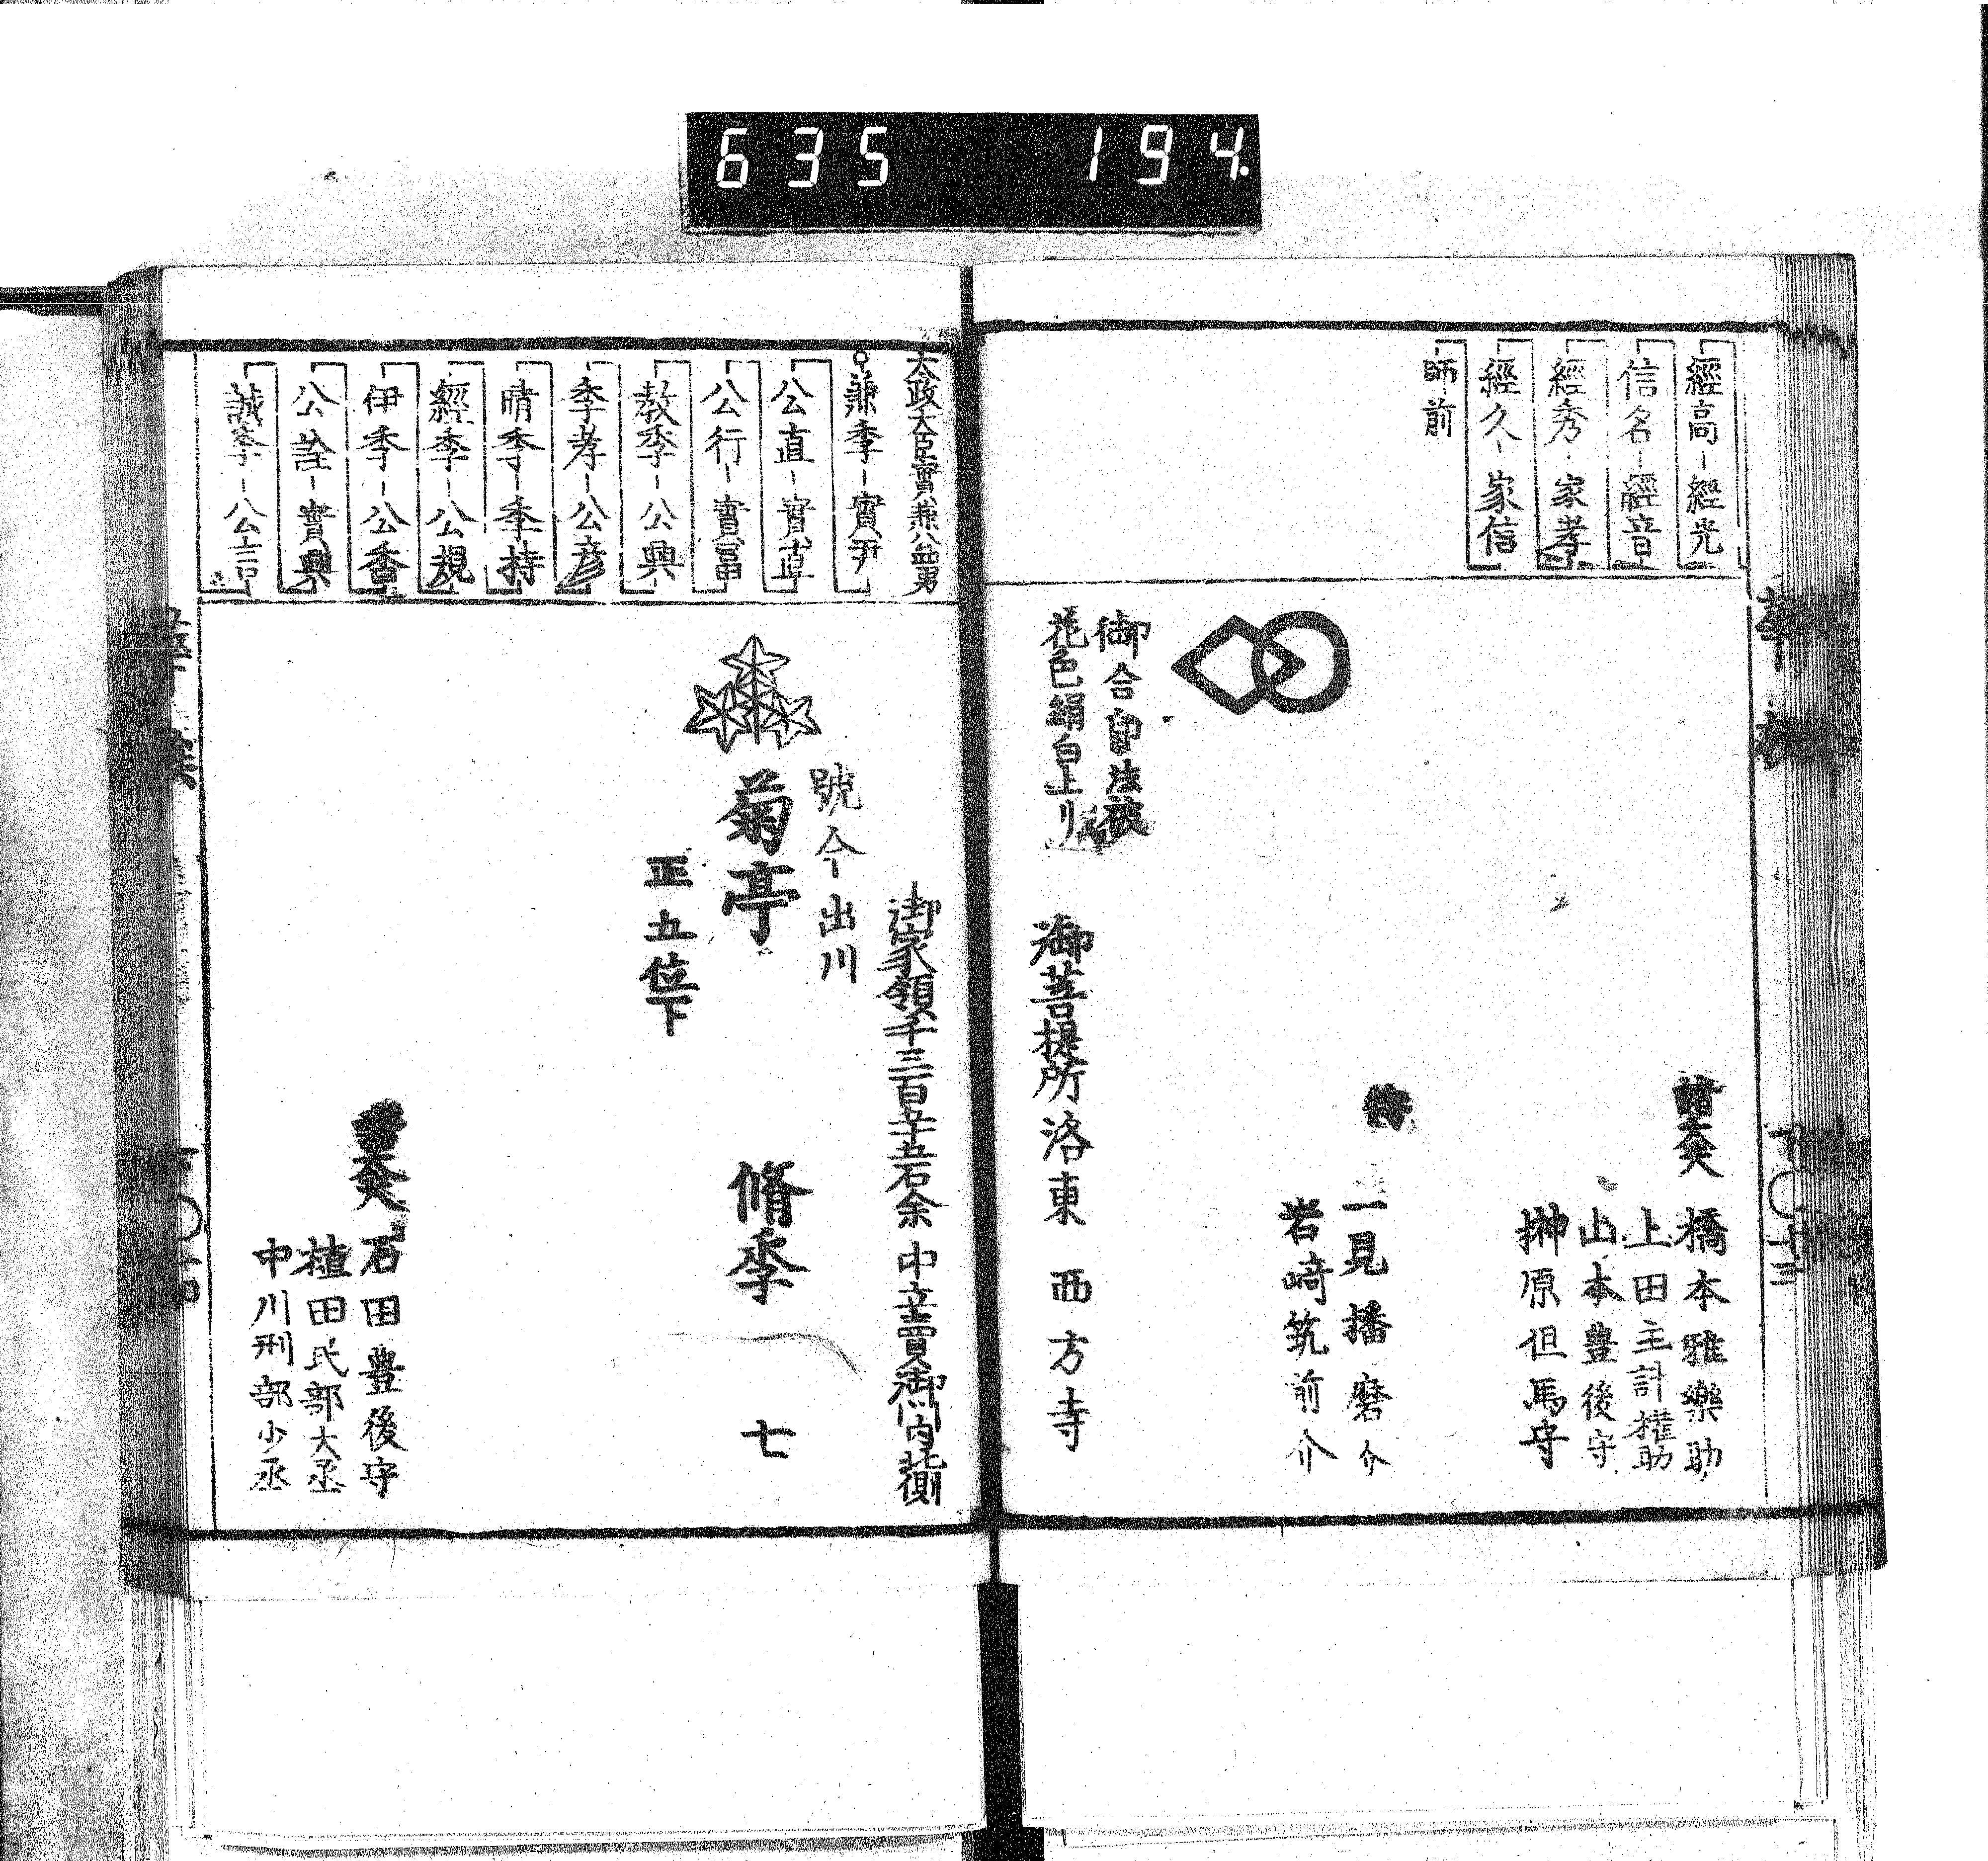 635 194
經高－經光
信名－經音
經秀－家孝
經久－家信
師前
諸大夫
橋本雅樂助
上田主計權助
山本豊後守
榊原但馬守
侍
一見播磨介
岩﨑筑前介
御合印法被
花色絹白上リ
御菩提所洛東 西方寺
太政大臣實兼公四男
兼季－實尹
公直－實直
公行－實富
教季－公興
季孝－公彦
晴季－季持
經季－公規
伊季－公香
公詮－實興
誠季－公言
御家領千三百五十五石余 中立賣御門内
號今出川
菊亭
正五位下
脩季
七
諸大夫
石田豊後守
植田民部大丞
中川刑部少丞